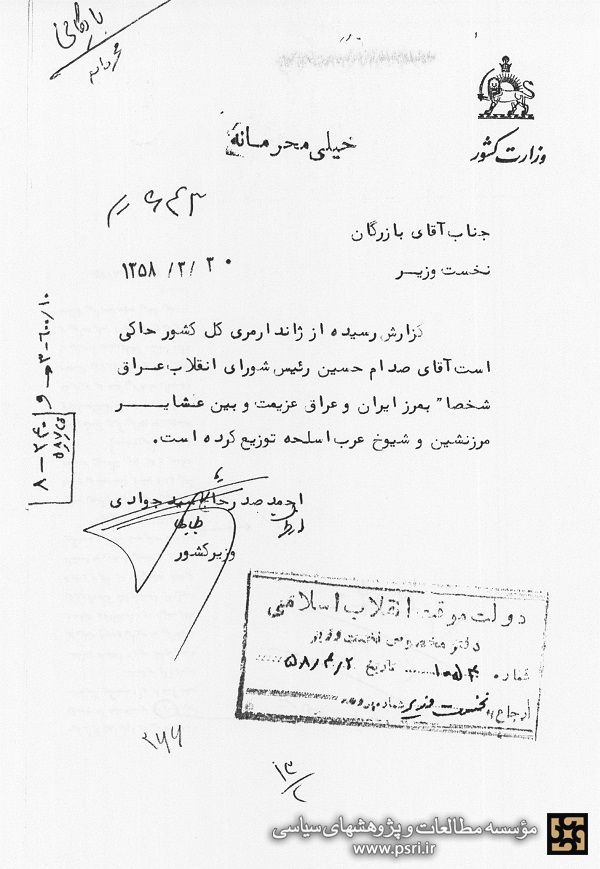 بایگانی
محرمانه
وزارت کشور
خیلی محرمانهٔ
۶۴۳ م
جناب آقای بازرگان
نخست وزیر
۱۳۵۸ /۳/ ۳۰
گزارش رسیده از ژاندارمری کل کشور حاکی
است آقای صدام حسین رئیس شورای انقلاب عراق
شخصا" بمرز ایران و عراق عزیمت و بین عشایر
مرزنشین و شیوخ عرب اسلحه توزیع کرده است.
احمد صدر حاج سید جوادی
وزیر کشور
۳-۶۰۰/۱۰
۸ - ۲۴۰
دولت موقت انقلاب اسلامی
دفتر مخصوص نخست وزیر
شماره ۱۰۵۴ تاریخ ۵۸/۴/۲
ارجاع به نخست وزیر شماره پرونده
۲۶۶
۱۳
مؤسسه مطالعات و پژوهشهای سیاسی
www.psri.ir